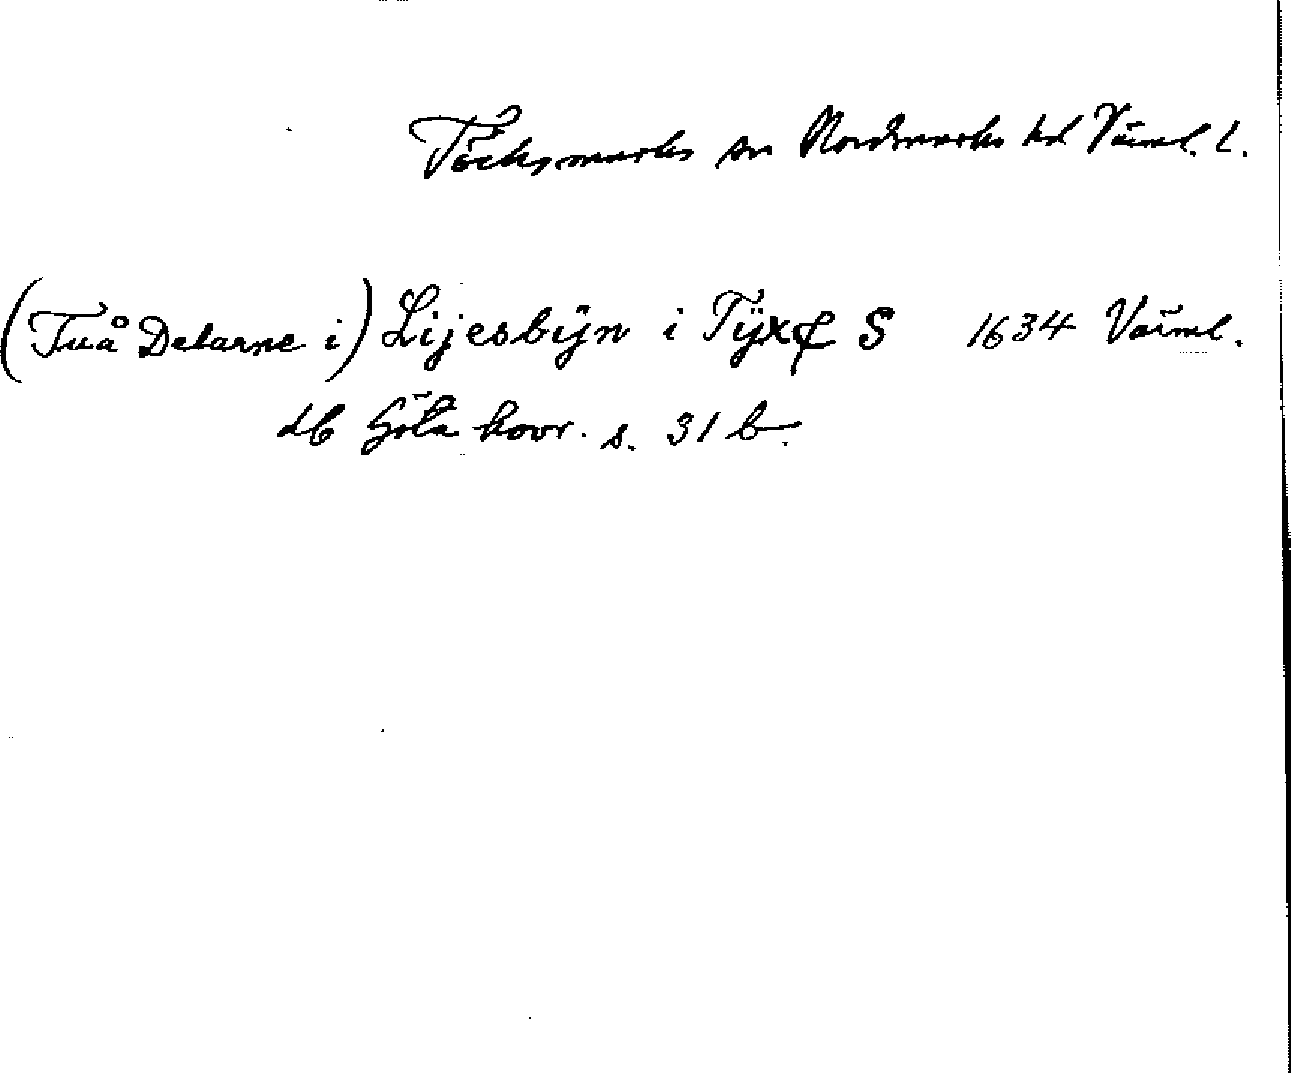 Töcksmarks sn Nordmarks hd Värml. l.
(Tuå Delarne i) Lijesbÿn i Tÿx S 1634 Värml.
db Göta hovr. s. 31 b.